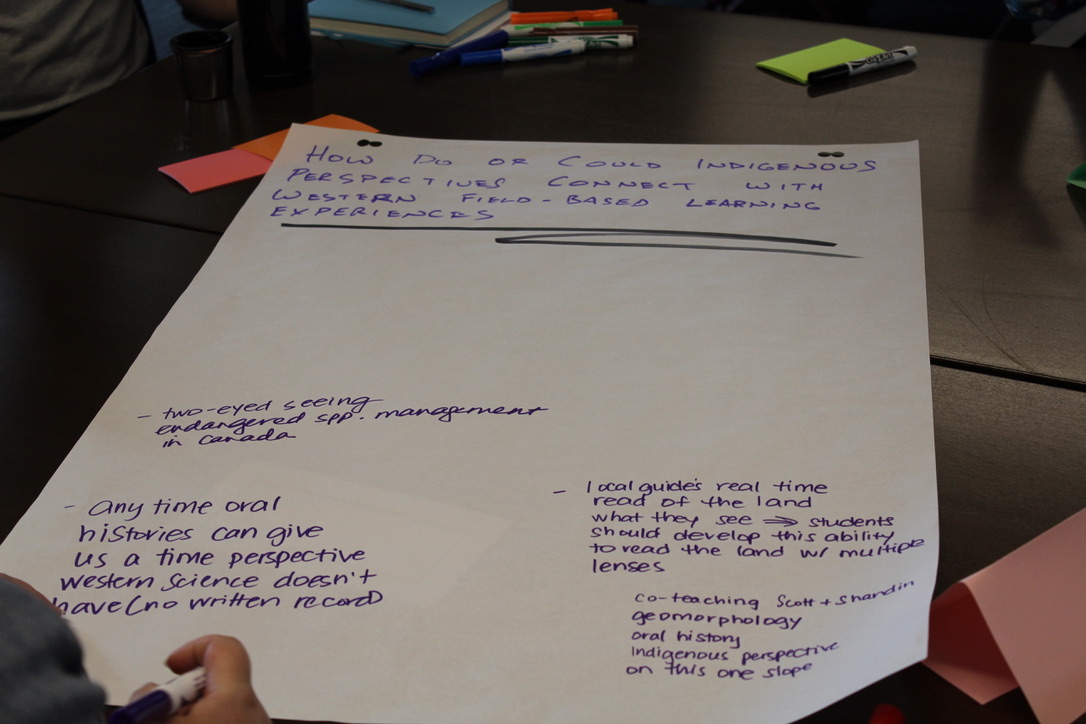 HOW DO OR COULD INDIGENOUS
PERSPECTIVES CONNECT WITH
WESTERN FIELD-BASED LEARNING
EXPERIENCES
- two-eyed seeing
endangered spp. management
in Canada
- Any time oral
histories can give
us a time perspective
western science doesn't
have (no written record)
- local guide's real time
read of the land
what they see ⇒ students
should develop this ability
to read the land w/ multiple
lenses
co-teaching Scott + Shandin
geomorphology
oral history
Indigenous perspective
on this one slope